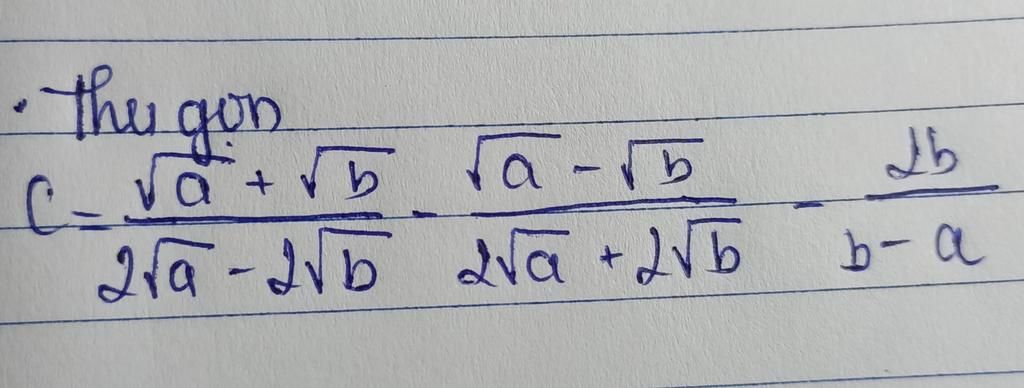 . Thu gọn
C = \frac{\sqrt{a} + \sqrt{b}}{2\sqrt{a} - 2\sqrt{b}} - \frac{\sqrt{a} - \sqrt{b}}{2\sqrt{a} + 2\sqrt{b}} - \frac{2b}{b - a}